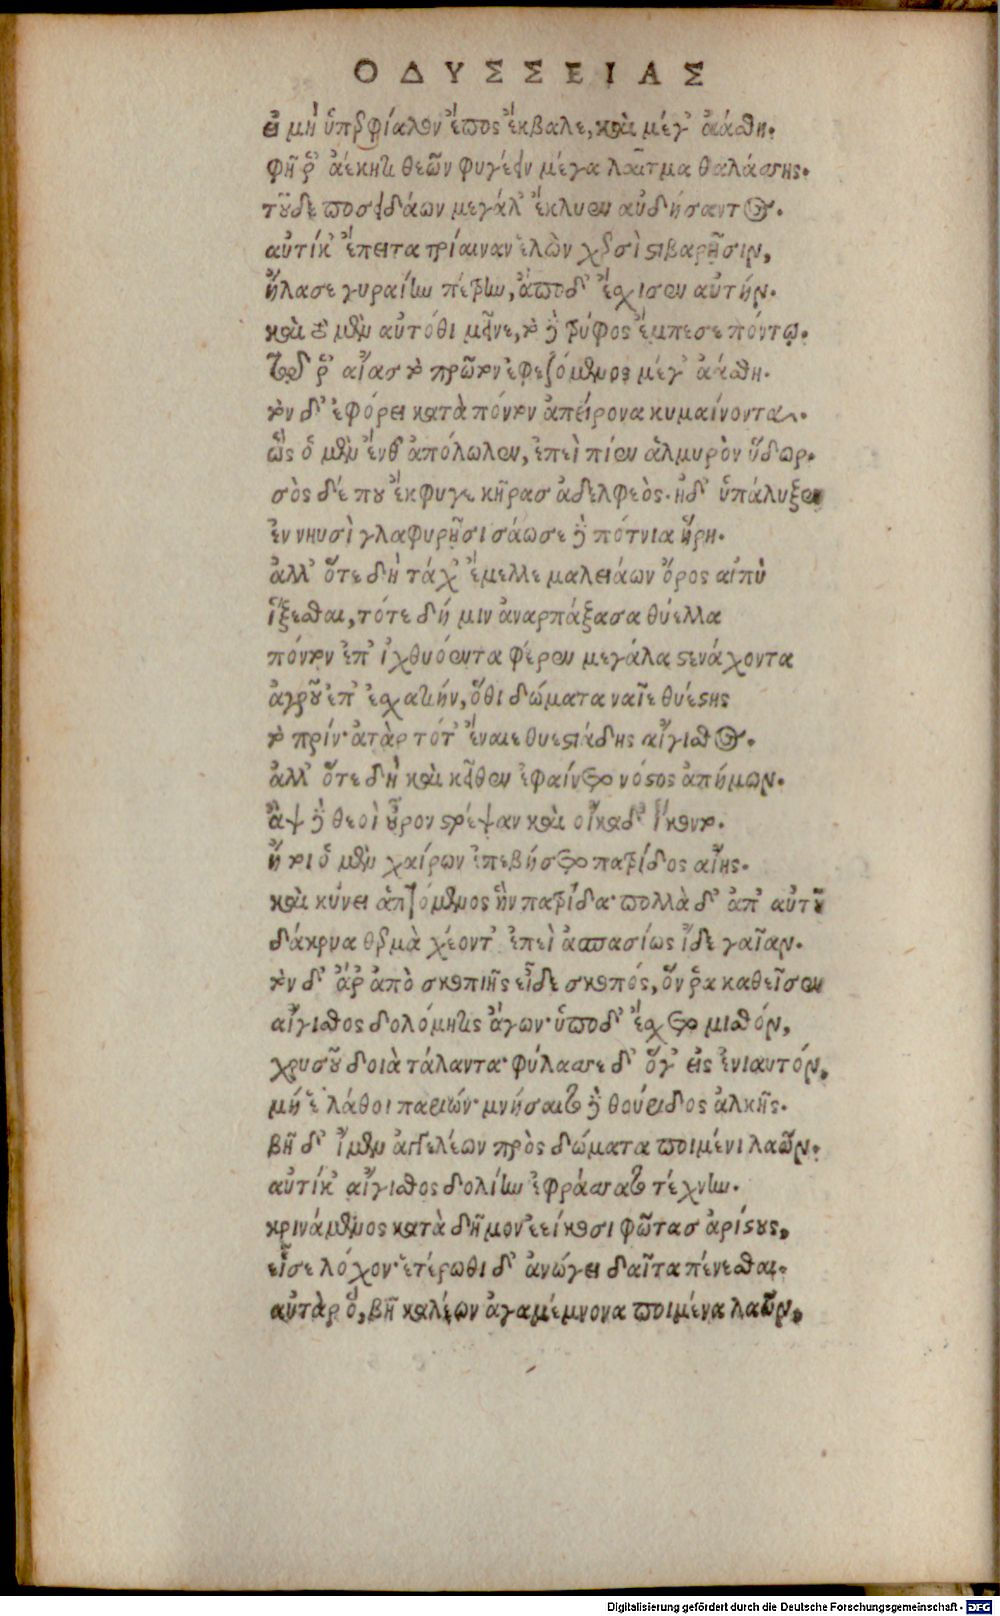 ΟΔΥΣΣΕΙΑΣ
εἰ μὴ ὑπερφίαλον ἔπος ἔκβαλε, καὶ μέγ᾽ ἀάσθη.
φῆ ῥ᾽ ἀέκητι θεῶν φυγέειν μέγα λαῖτμα θαλάσσης.
τοῦ δὲ ποσειδάων μεγάλ᾽ ἔκλυεν αὐδήσαντος.
αὐτίκ᾽ ἔπειτα τρίαιναν ἑλὼν χερσὶ στιβαρῇσιν,
ἤλασε γυραίην πέτρην, ἀπὸ δ᾽ ἔσχισεν αὐτήν.
καὶ τὸ μὲν αὐτόθι μεῖνε, τὸ δὲ τρύφος ἔμπεσε πόντῳ.
τῷ ῥ᾽ αἴας τὸ πρῶτον ἐφεζόμενος μέγ᾽ ἀάσθη.
τὸν δ᾽ ἐφόρει κατὰ πόντον ἀπείρονα κυμαίνοντα.
ὣς ὁ μὲν ἔνθ᾽ ἀπόλωλεν, ἐπεὶ πίεν ἁλμυρὸν ὕδωρ.
σὸς δέ που ἔκφυγε κῆρας ἀδελφεὸς. ἠδ᾽ ὑπάλυξεν
ἐν νηυσὶ γλαφυρῇσι σάωσε δὲ πότνια ἥρη.
ἀλλ᾽ ὅτε δὴ τάχ᾽ ἔμελλε μαλειάων ὄρος αἰπὺ
ἵξεσθαι, τότε δή μιν ἀναρπάξασα θύελλα
πόντον ἐπ᾽ ἰχθυόεντα φέρεν μεγάλα στενάχοντα
ἀγροῦ ἐπ᾽ ἐσχατιήν, ὅθι δώματα ναῖε θυέστης
τὸ πρίν· ἀτὰρ τότ᾽ ἔναιε θυεστιάδης αἴγισθος.
ἀλλ᾽ ὅτε δὴ καὶ κεῖθεν ἐφαίνετο νόστος ἀπήμων.
ἂψ δὲ θεοὶ οὖρον στρέψαν καὶ οἴκαδ᾽ ἵκοντο.
ἤτοι ὁ μὲν χαίρων ἐπεβήσετο πατρίδος αἴης.
καὶ κύνει ἁπτόμενος ἣν πατρίδα· πολλὰ δ᾽ ἀπ᾽ αὐτοῦ
δάκρυα θερμὰ χέοντ᾽ ἐπεὶ ἀσπασίως ἴδε γαῖαν.
τὸν δ᾽ ἄρ᾽ ἀπὸ σκοπιῆς εἶδε σκοπός, ὅν ῥα καθεῖσεν
αἴγισθος δολόμητις ἄγων· ὑπὸ δ᾽ ἔσχετο μισθόν,
χρυσοῦ δοιὰ τάλαντα· φύλασσε δ᾽ ὅγ᾽ εἰς ἐνιαυτόν,
μή ἑ λάθοι παριών· μνήσαιτο δὲ θούριδος ἀλκῆς.
βῆ δ᾽ ἴμεν ἀγγελέων πρὸς δώματα ποιμένι λαῶν.
αὐτίκ᾽ αἴγισθος δολίην ἐφράσσατο τέχνην.
κρινάμενος κατὰ δῆμον ἐείκοσι φῶτας ἀρίστους,
εἷσε λόχον· ἑτέρωθι δ᾽ ἀνώγει δαῖτα πένεσθαι.
αὐτὰρ ὅ, βῆ καλέων ἀγαμέμνονα ποιμένα λαῶν,
Digitalisierung gefördert durch die Deutsche Forschungsgemeinschaft - DFG